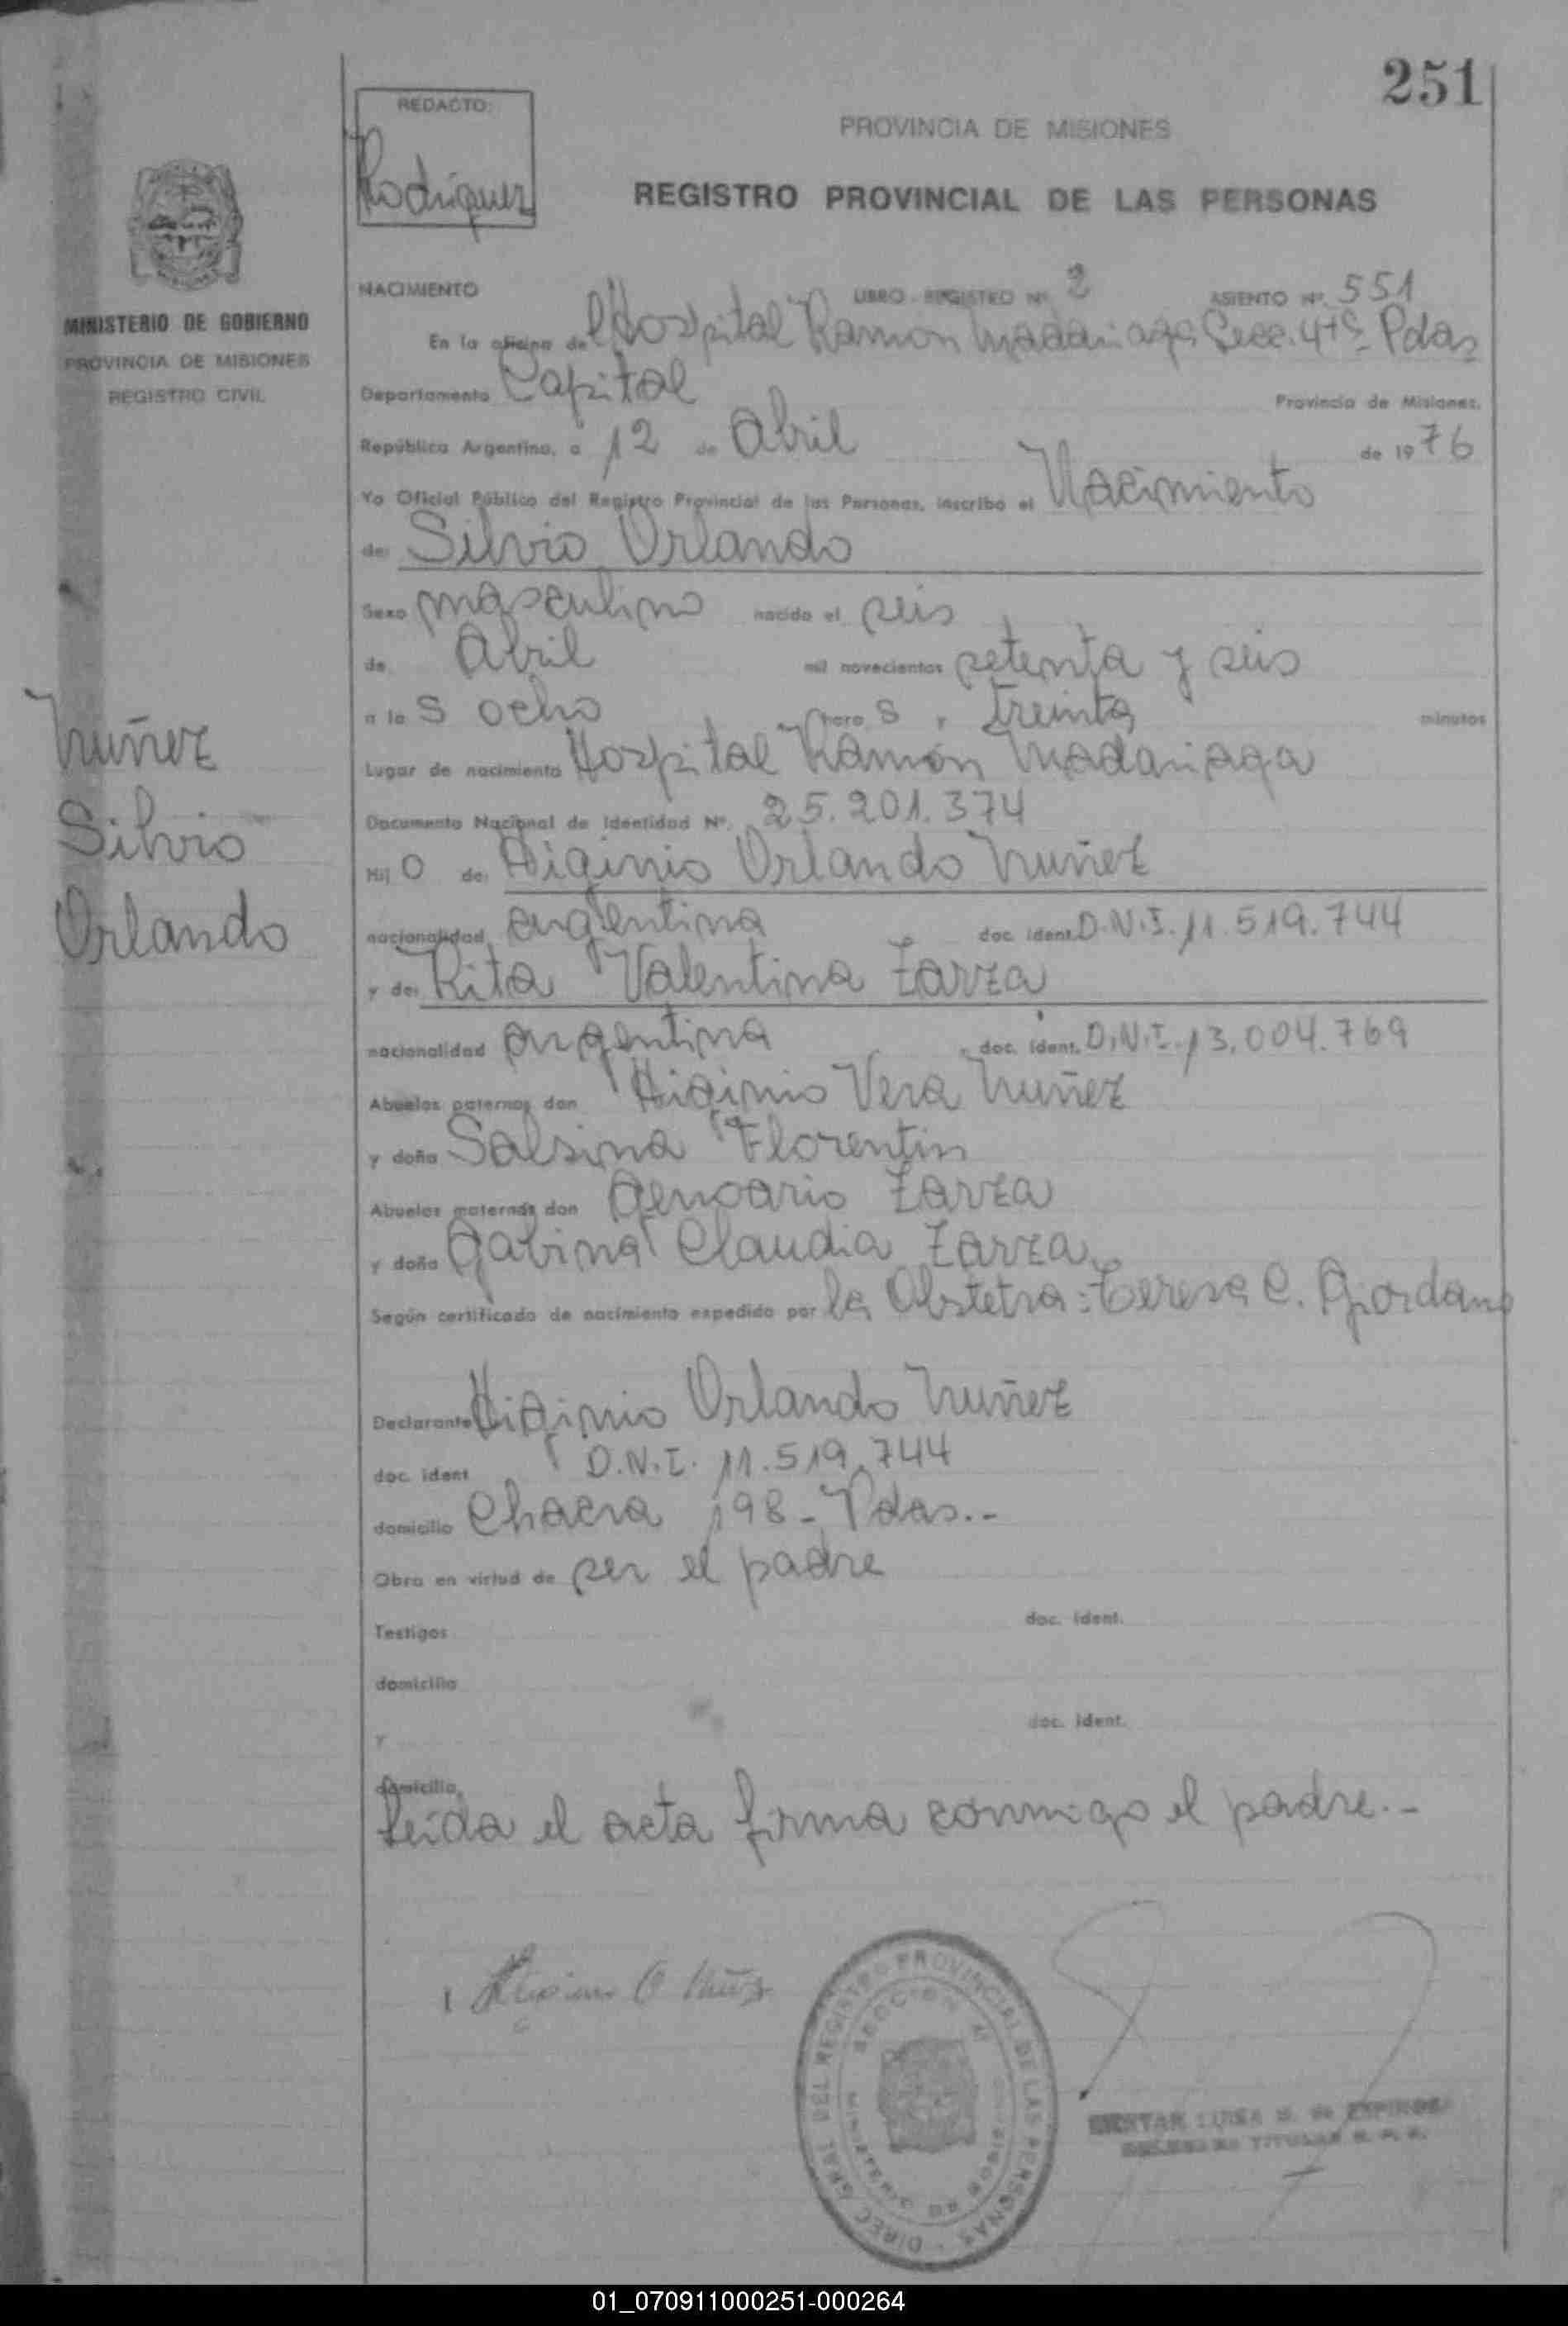 251
REDACTO:
Rodriguez
PROVINCIA DE MISIONES
REGISTRO PROVINCIAL DE LAS PERSONAS
MINISTERIO DE GOBIERNO
PROVINCIA DE MISIONES
REGISTRO CIVIL
NACIMIENTO LIBRO REGISTRO Nº 2 ASIENTO Nº 551
En la oficina del Hospital Ramon Madariaga Secc. 4ta Pdas
Departamento Capital Provincia de Misiones.
República Argentina, a 12 de Abril de 1976
Yo Oficial Público del Registro Provincial de las Personas, inscribo el Nacimiento
de: Silvio Orlando
Sexo masculino nacido el seis
de Abril mil novecientos setenta y seis
a las ocho horas y treinta minutos
Lugar de nacimiento Hospital Ramón Madariaga
Documento Nacional de Identidad Nº. 25.201.374
Hijo de: Higinio Orlando Nuñez
nacionalidad argentina doc. ident. D.N.I. 11.519.744
y de: Rita Valentina Zarza
nacionalidad argentina doc. ident. D.N.I. 13.004.769
Abuelos paternos don Higinio Vera Nuñez
y doña Salsina Florentin
Abuelos maternos don Genoario Zarza
y doña Gabina Claudia Zarza
Según certificado de nacimiento expedido por la Obstetra: Teresa C. Giordano
Nuñez
Silvio
Orlando
Declarante Higinio Orlando Nuñez
doc. ident D.N.I. 11.519.744
domicilio Chacra 198 - Pdas.-
Obra en virtud de ser el padre
Testigos doc. ident.
domicilio
y doc. ident.
domicilio
Leida el acta firma conmigo el padre.-
Higinio O Nuñez
DIREC. GRAL. DEL REGISTRO PROVINCIAL DE LAS PERSONAS
SECCION
MINISTERIO DE GOBIERNO
LUISA
TITULAR
01_070911000251-000264